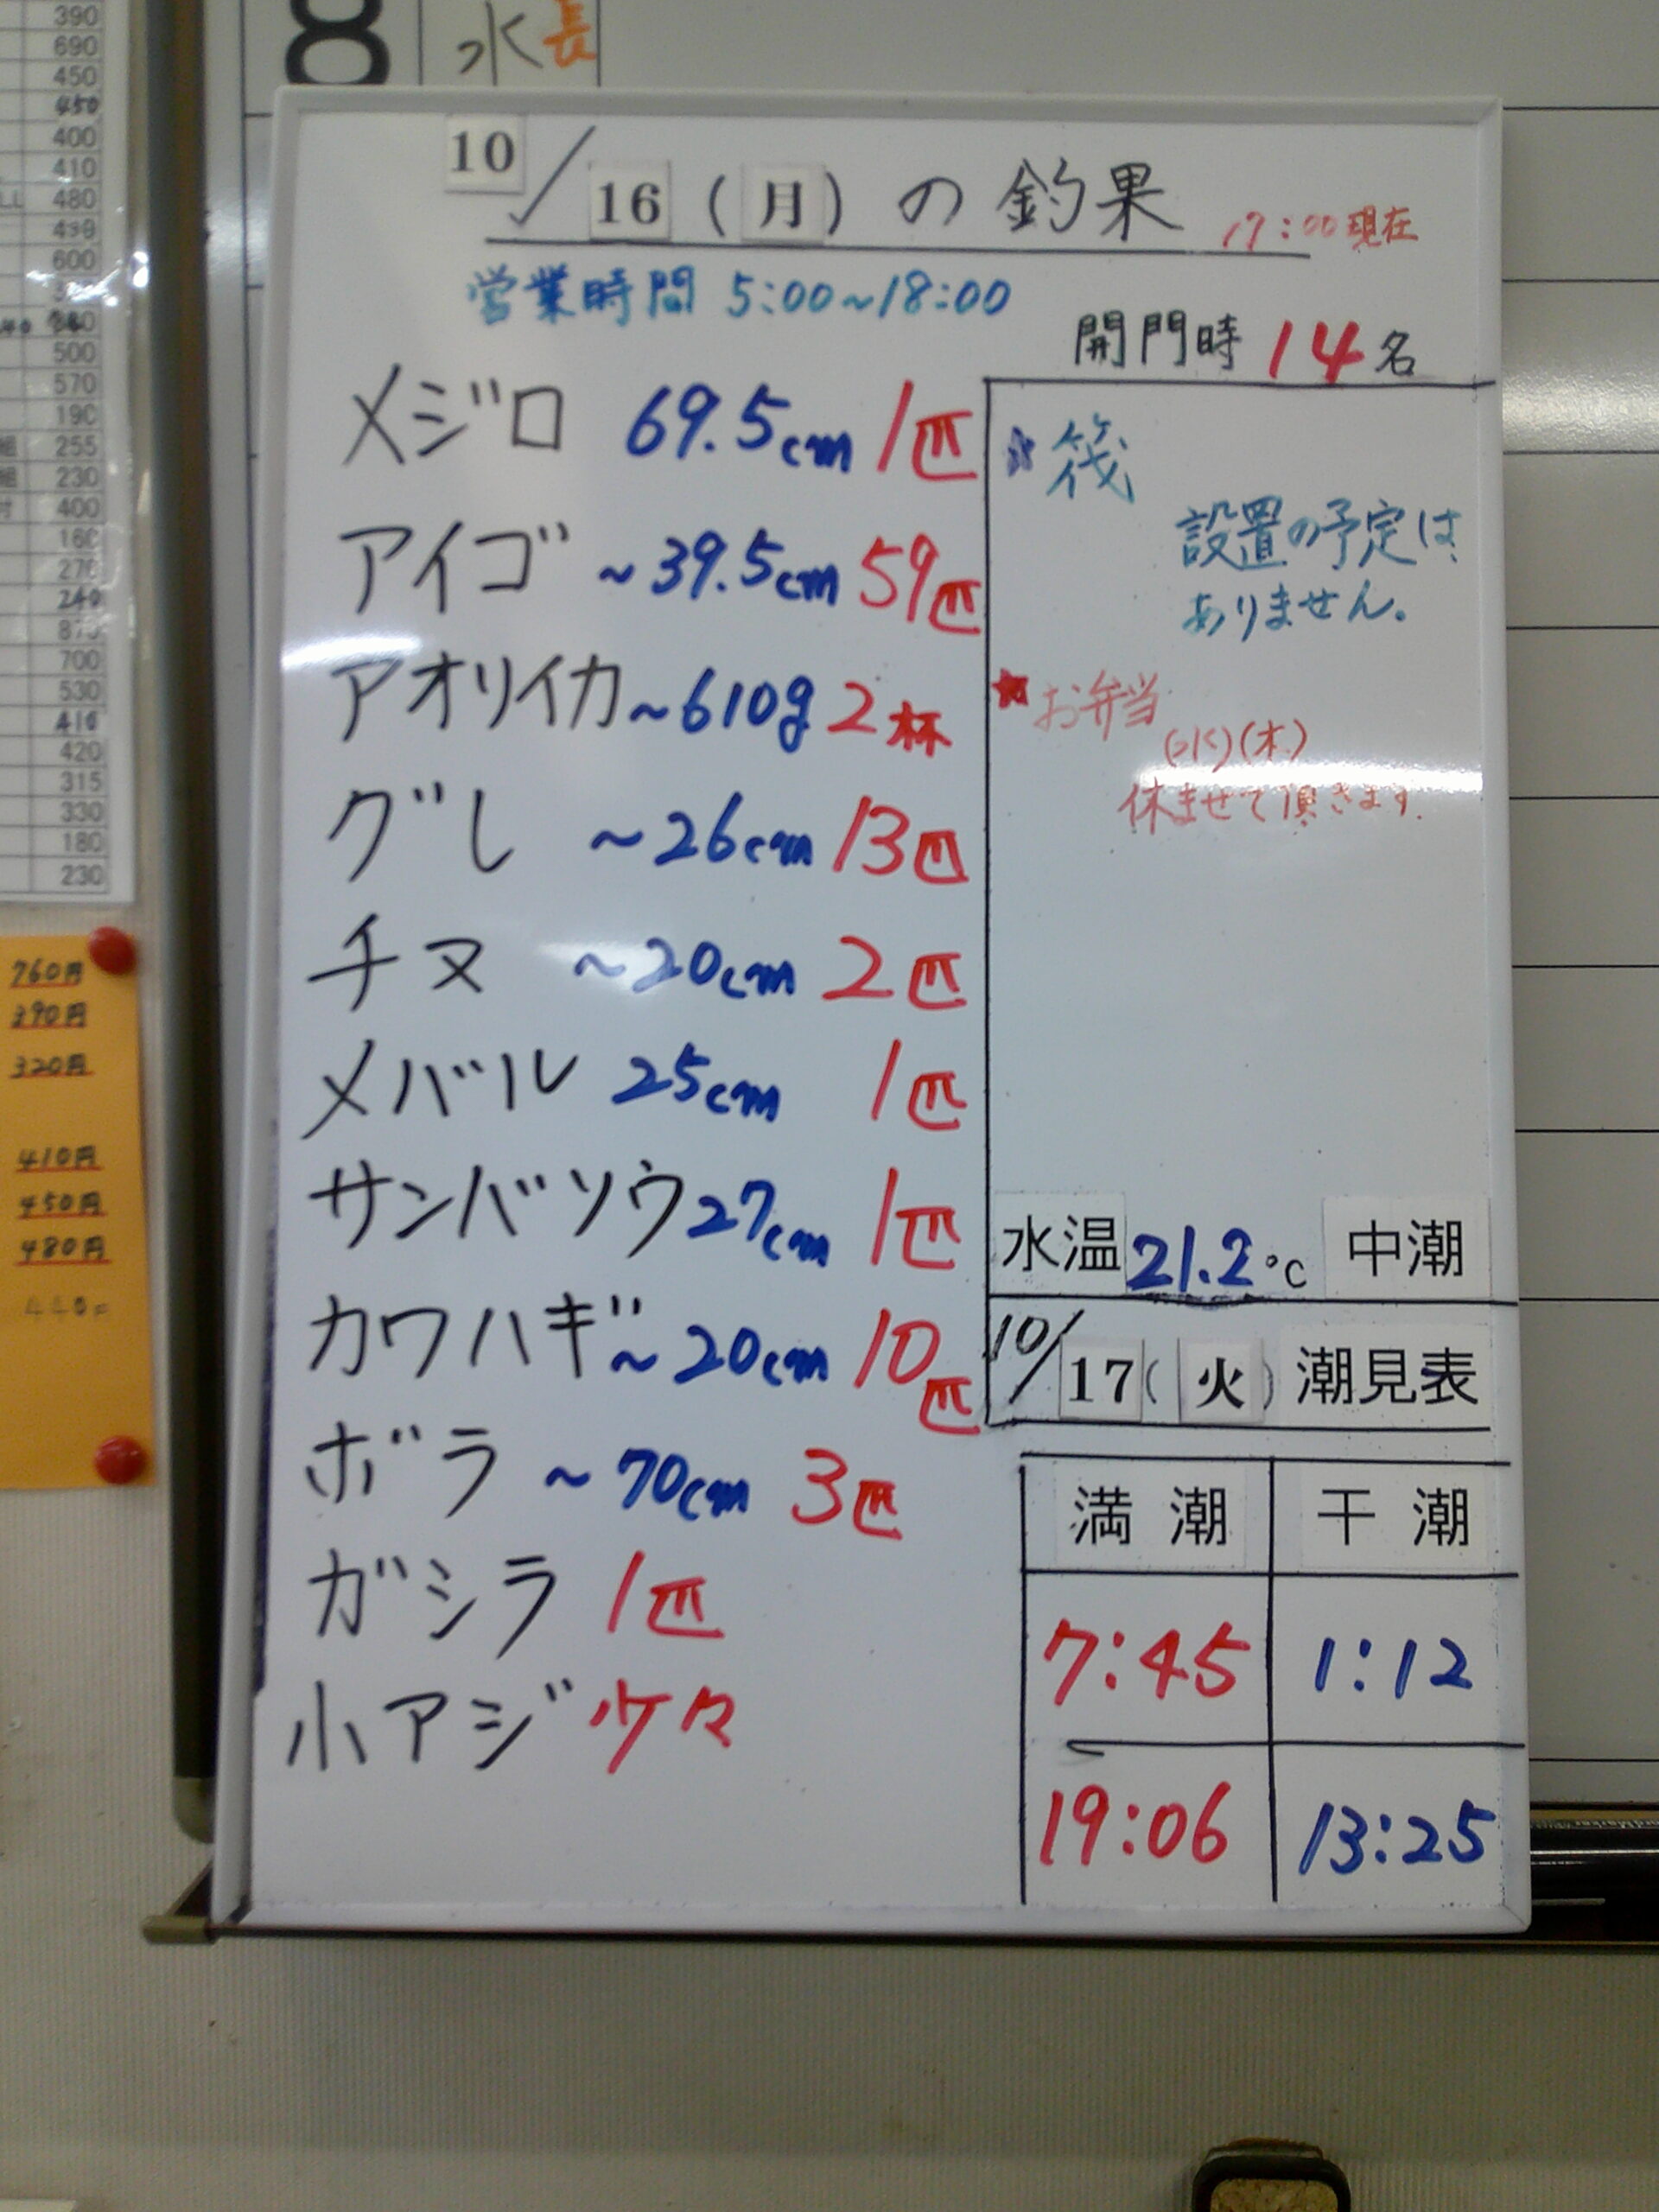 8 水 長
10/16(月)の釣果 17:00現在
営業時間 5:00~18:00
開門時 14名
メジロ 69.5cm 1匹
アイゴ ~39.5cm 59匹
アオリイカ ~610g 2杯
グレ ~26cm 13匹
チヌ ~20cm 2匹
メバル 25cm 1匹
サンバソウ 27cm 1匹
カワハギ ~20cm 10匹
ボラ ~70cm 3匹
ガシラ 1匹
小アジ 少々
★筏
設置の予定は
ありません。
★お弁当
(水)(木)
休ませて頂きます.
水温 21.2℃ 中潮
10/17(火)潮見表
満潮 干潮
7:45 1:12
19:06 13:25
390
690
450
450
400
410
LL 480
490
600
500
570
190
組 255
組 230
付 400
160
270
240
875
700
530
410
420
315
330
180
230
760円
390円
320円
410円
450円
480円